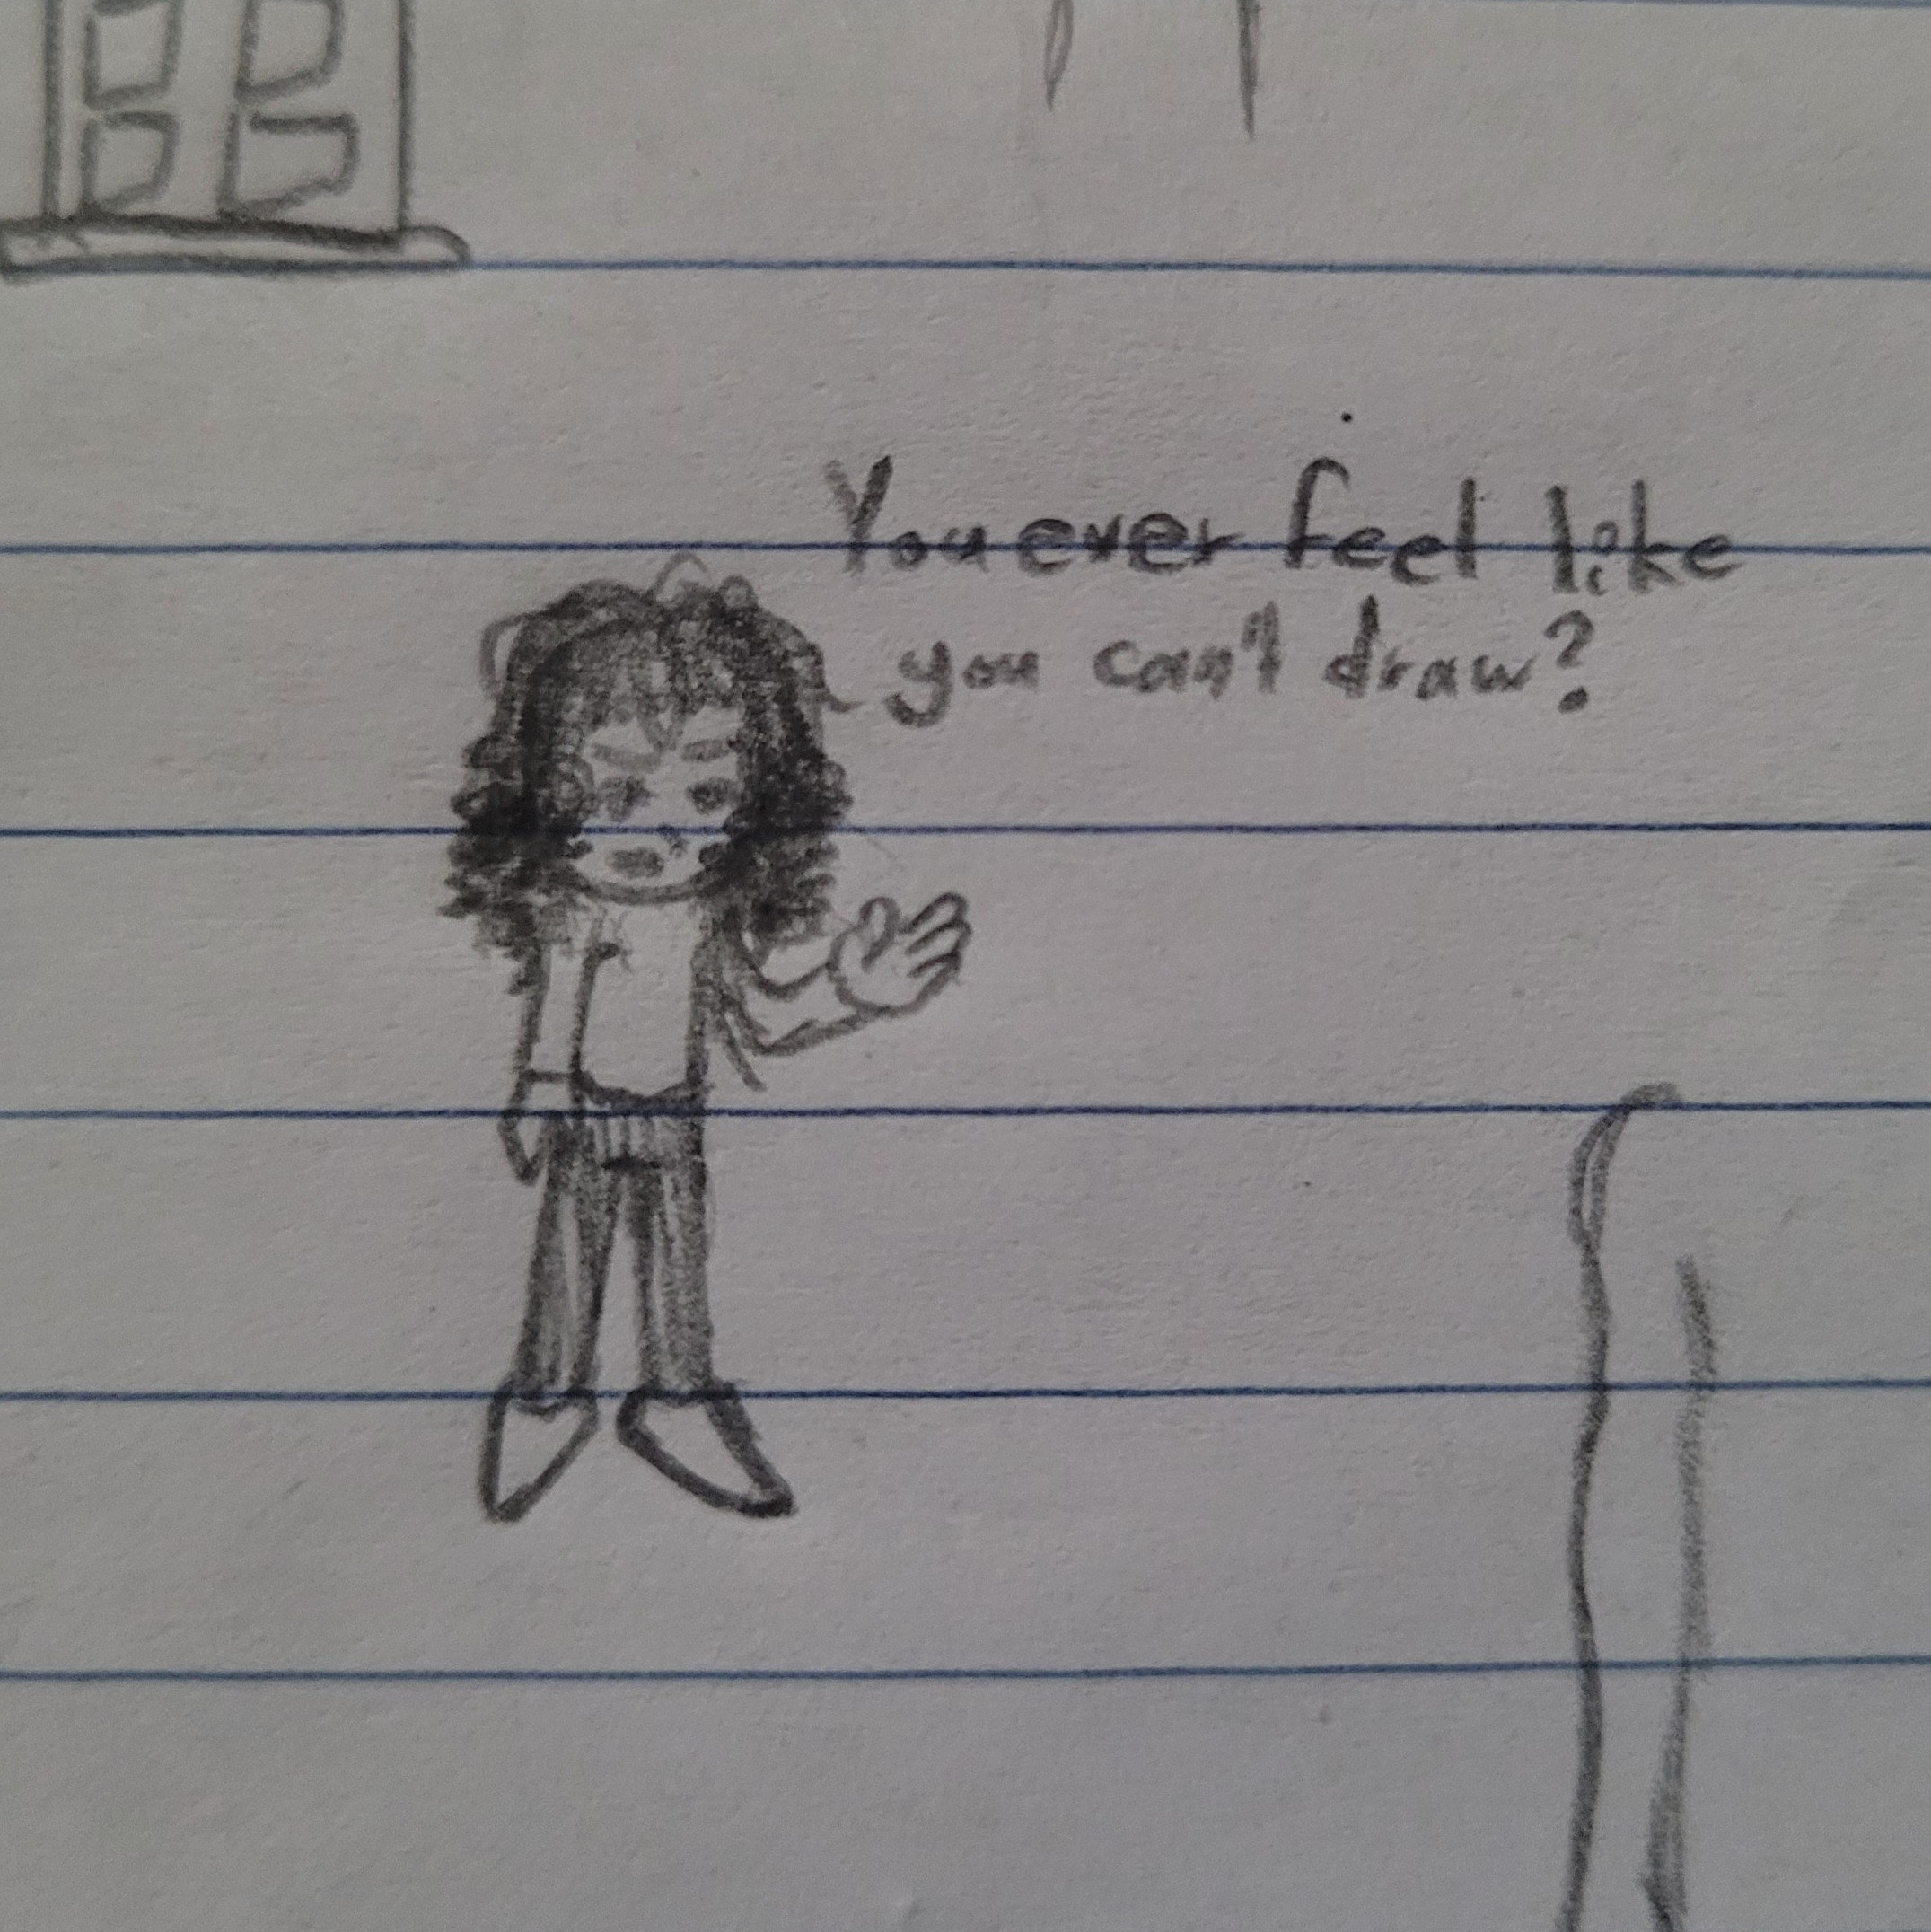 You ever feel like
you can't draw?